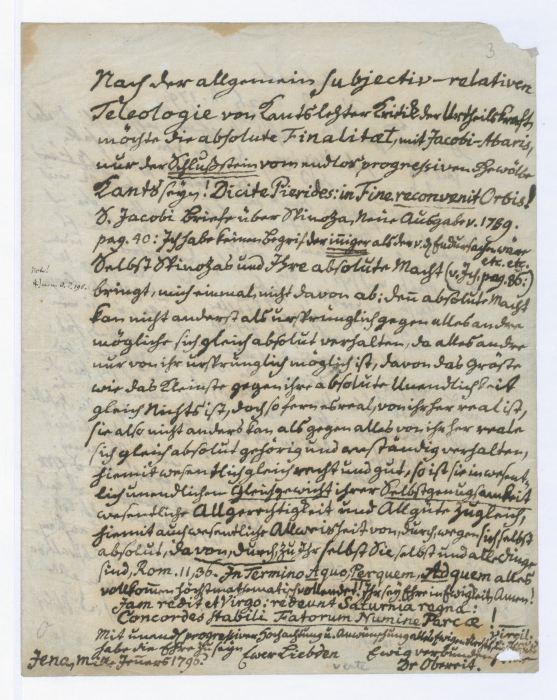 3
Nach der allgemein subjectiv-relativen
Teleologie von Kants letzter Kritik der Urtheilskraft,
möchte die absolute Finalität, mit Jacobi-Abaris,
nur der Schlußstein vom endlos progressiven Gewölbe
Kants seyn! Dicite Pierides: in Fine reconvenit Orbis!
S. Jacobi Briefe über Spinoza, Neue Ausgabe v. 1789.
pag. 40: Ich habe keinen Begrif der inniger als der v. d. Endursachen wäre
etc. etc.
Selbst Spinozas und Ihre absolute Macht (v. Ich, pag. 86:)
bringt, mich einmal, nicht davon ab: deñ absolute Macht
kan nicht anderst als ursprünglich gegen alles andre
mögliche sich gleich absolut verhalten, da alles andre
nur von ihr ursprünglich möglich ist, davon das Gröste
wie das Kleinste gegen ihre absolute Unendlichkeit
gleich Nichts ist, doch sofern es real, von ihr her real ist,
sie also nicht anders kan als gegen alles von ihr her reale
sich gleich absolut gehörig und verständig verhalten,
hiemit wesentlich gleich recht und gut, so ist sie im wesent-
lich unendlichen Gleichgewicht ihrer Selbstgenugsamkeit
wesentliche Allgerechtigkeit und Allgüte zugleich,
hiemit auch wesentliche Allweisheit von, durch, wegen sich selbst
absolut, davon, durch, zu Ihr selbst Sie selbst und alle Dinge
sind, Rom. 11, 36. In Termino A quo, Per quem, Ad quem alles
vollkomen höchst mathematisch vollendet. Ihr sey Ehre in Ewigkeit, Amen!
Jam redit et Virgo: redeunt Saturnia regna:
Concordes stabili Fatorum Numine Parcæ!
Virgil.
Mit unendl. progressiver Hochachtung u. Anwünschung
habe die Ehre zu seyn
Euer Liebden
Ewig verbundener
Jena, Mitte Jenners 1795.
Dr Obereit.